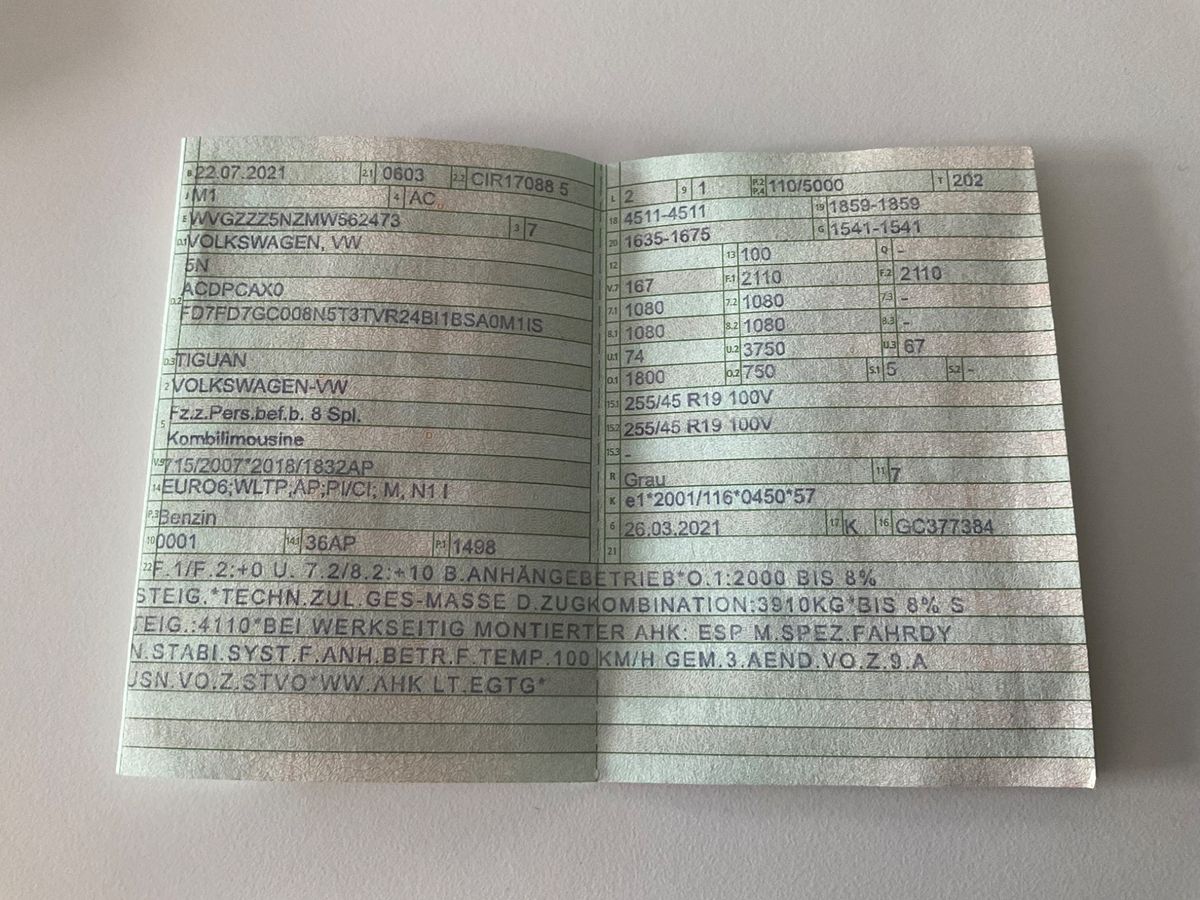 B 22.07.2021 2.1 0603 2.2 CIR17088 5
J M1 4 AC
E WVGZZZ5NZMW562473 3 7
D.1 VOLKSWAGEN, VW
5N
D.2 ACDPCAX0
FD7FD7GC008N5T3TVR24BI1BSA0M1IS
D.3 TIGUAN
2 VOLKSWAGEN-VW
5 Fz.z.Pers.bef.b. 8 Spl.
Kombilimousine
V.9 715/2007*2018/1832AP
14 EURO6;WLTP;AP;PI/CI; M, N1 I
P.3 Benzin
10 0001 14.1 36AP P.1 1498
L 2 9 1 P.2 P.4 110/5000 T 202
18 4511-4511 19 1859-1859
20 1635-1675 G 1541-1541
12 13 100 Q -
V.7 167 F.1 2110 F.2 2110
7.1 1080 7.2 1080 7.3 -
8.1 1080 8.2 1080 8.3 -
U.1 74 U.2 3750 U.3 67
O.1 1800 O.2 750 S.1 5 S.2 -
15.1 255/45 R19 100V
15.2 255/45 R19 100V
15.3 -
R Grau 11 7
K e1*2001/116*0450*57
6 26.03.2021 17 K 16 GC377384
21
22 F.1/F.2:+0 U. 7.2/8.2:+10 B.ANHÄNGEBETRIEB*O.1:2000 BIS 8%
STEIG.*TECHN.ZUL.GES-MASSE D.ZUGKOMBINATION:3910KG*BIS 8% S
TEIG.:4110*BEI WERKSEITIG MONTIERTER AHK: ESP M.SPEZ.FAHRDY
N.STABI.SYST.F.ANH.BETR.F.TEMP.100 KM/H GEM.3.AEND.VO.Z.9 A
USN.VO.Z.STVO*WW.AHK LT.EGTG*